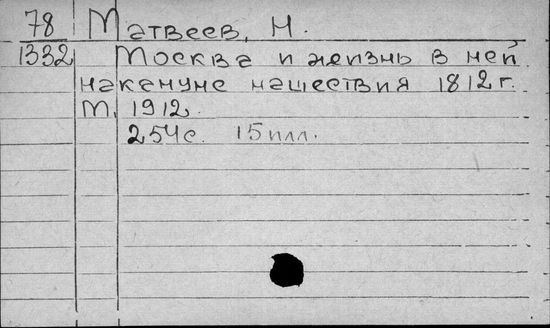 78 Матвеев, Н.
1332 Москва и жизнь в ней
накануне нашествия 1812 г.
М, 1912.
254 с. 15 илл.